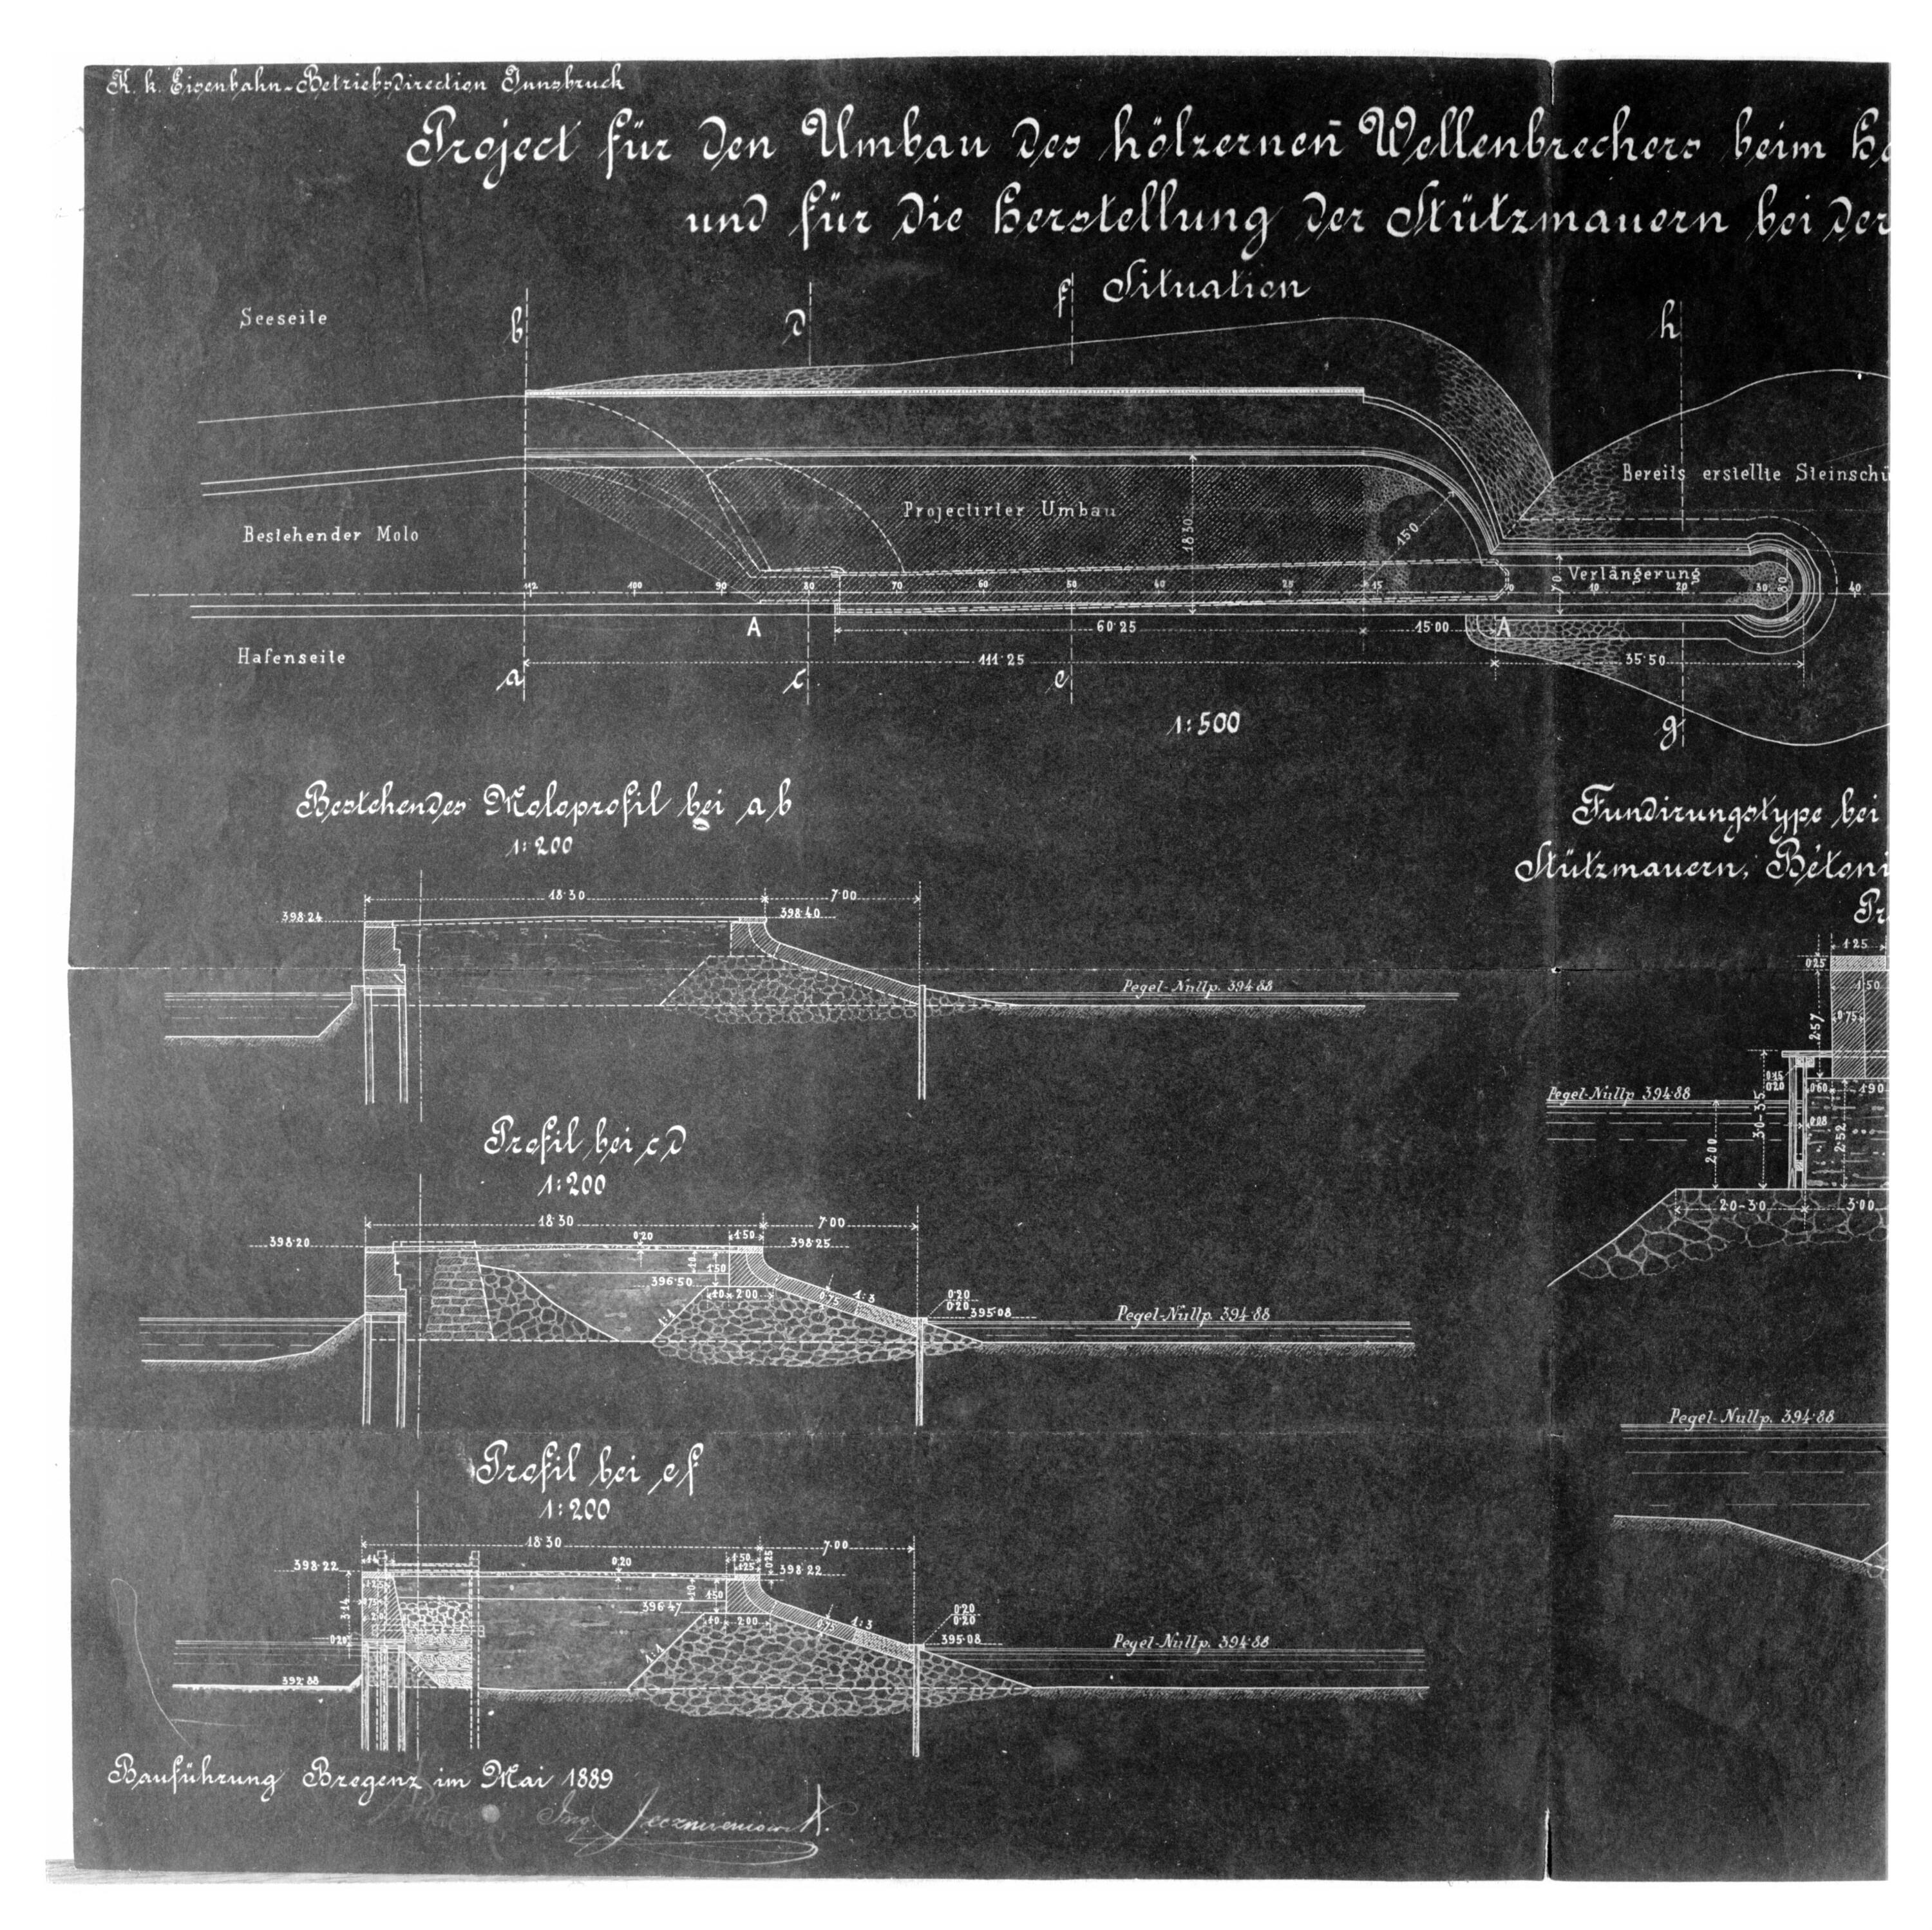 K. k. Eisenbahn-Betriebsdirection Innsbruck
Project für den Umbau des hölzernen Wellenbrechers beim
und für die Herstellung der Stützmauern bei der
Situation
Seeseite
b
d
f
h
Bereits erstellte
Projectirter Umbau
Bestehender Molo
18·30
150
Verlängerung
7·0
8·0
112
100
90
80
70
60
50
40
28
15
0
10
20
30
40
A
A
60·25
15·00
Hafenseite
111·25
35·50
a
c
e
g
1:500
Bestehendes Moloprofil bei ab
1:200
18·30
7·00
398·24
398·40
Pegel-Nullp. 394·88
Profil bei cd
1:200
18·30
7·00
398·20
0·20
1·50
398·25
1·50
396·50
2·00
0·75
1:3
1:1
0·20
0·20
395·08
Pegel-Nullp. 394·88
Profil bei ef
1:200
18·30
7·00
398·22
0·20
1·50
1·25
0·25
398·22
3·14
1·50
396·47
2·00
0·75
1:3
1:1
0·20
0·20
0·20
395·08
Pegel-Nullp. 394·88
392·88
Bauführung Bregenz im Mai 1889
Ing.
Fundirungstype bei
Stützmauern,
1·25
0·25
1·50
0·75
2·57
0·15
0·20
0·60
1·90
Pegel-Nullp. 394·88
0·08
3·0-3·5
2·00
2·52
2·0-3·0
3·00
Pegel-Nullp. 394·88